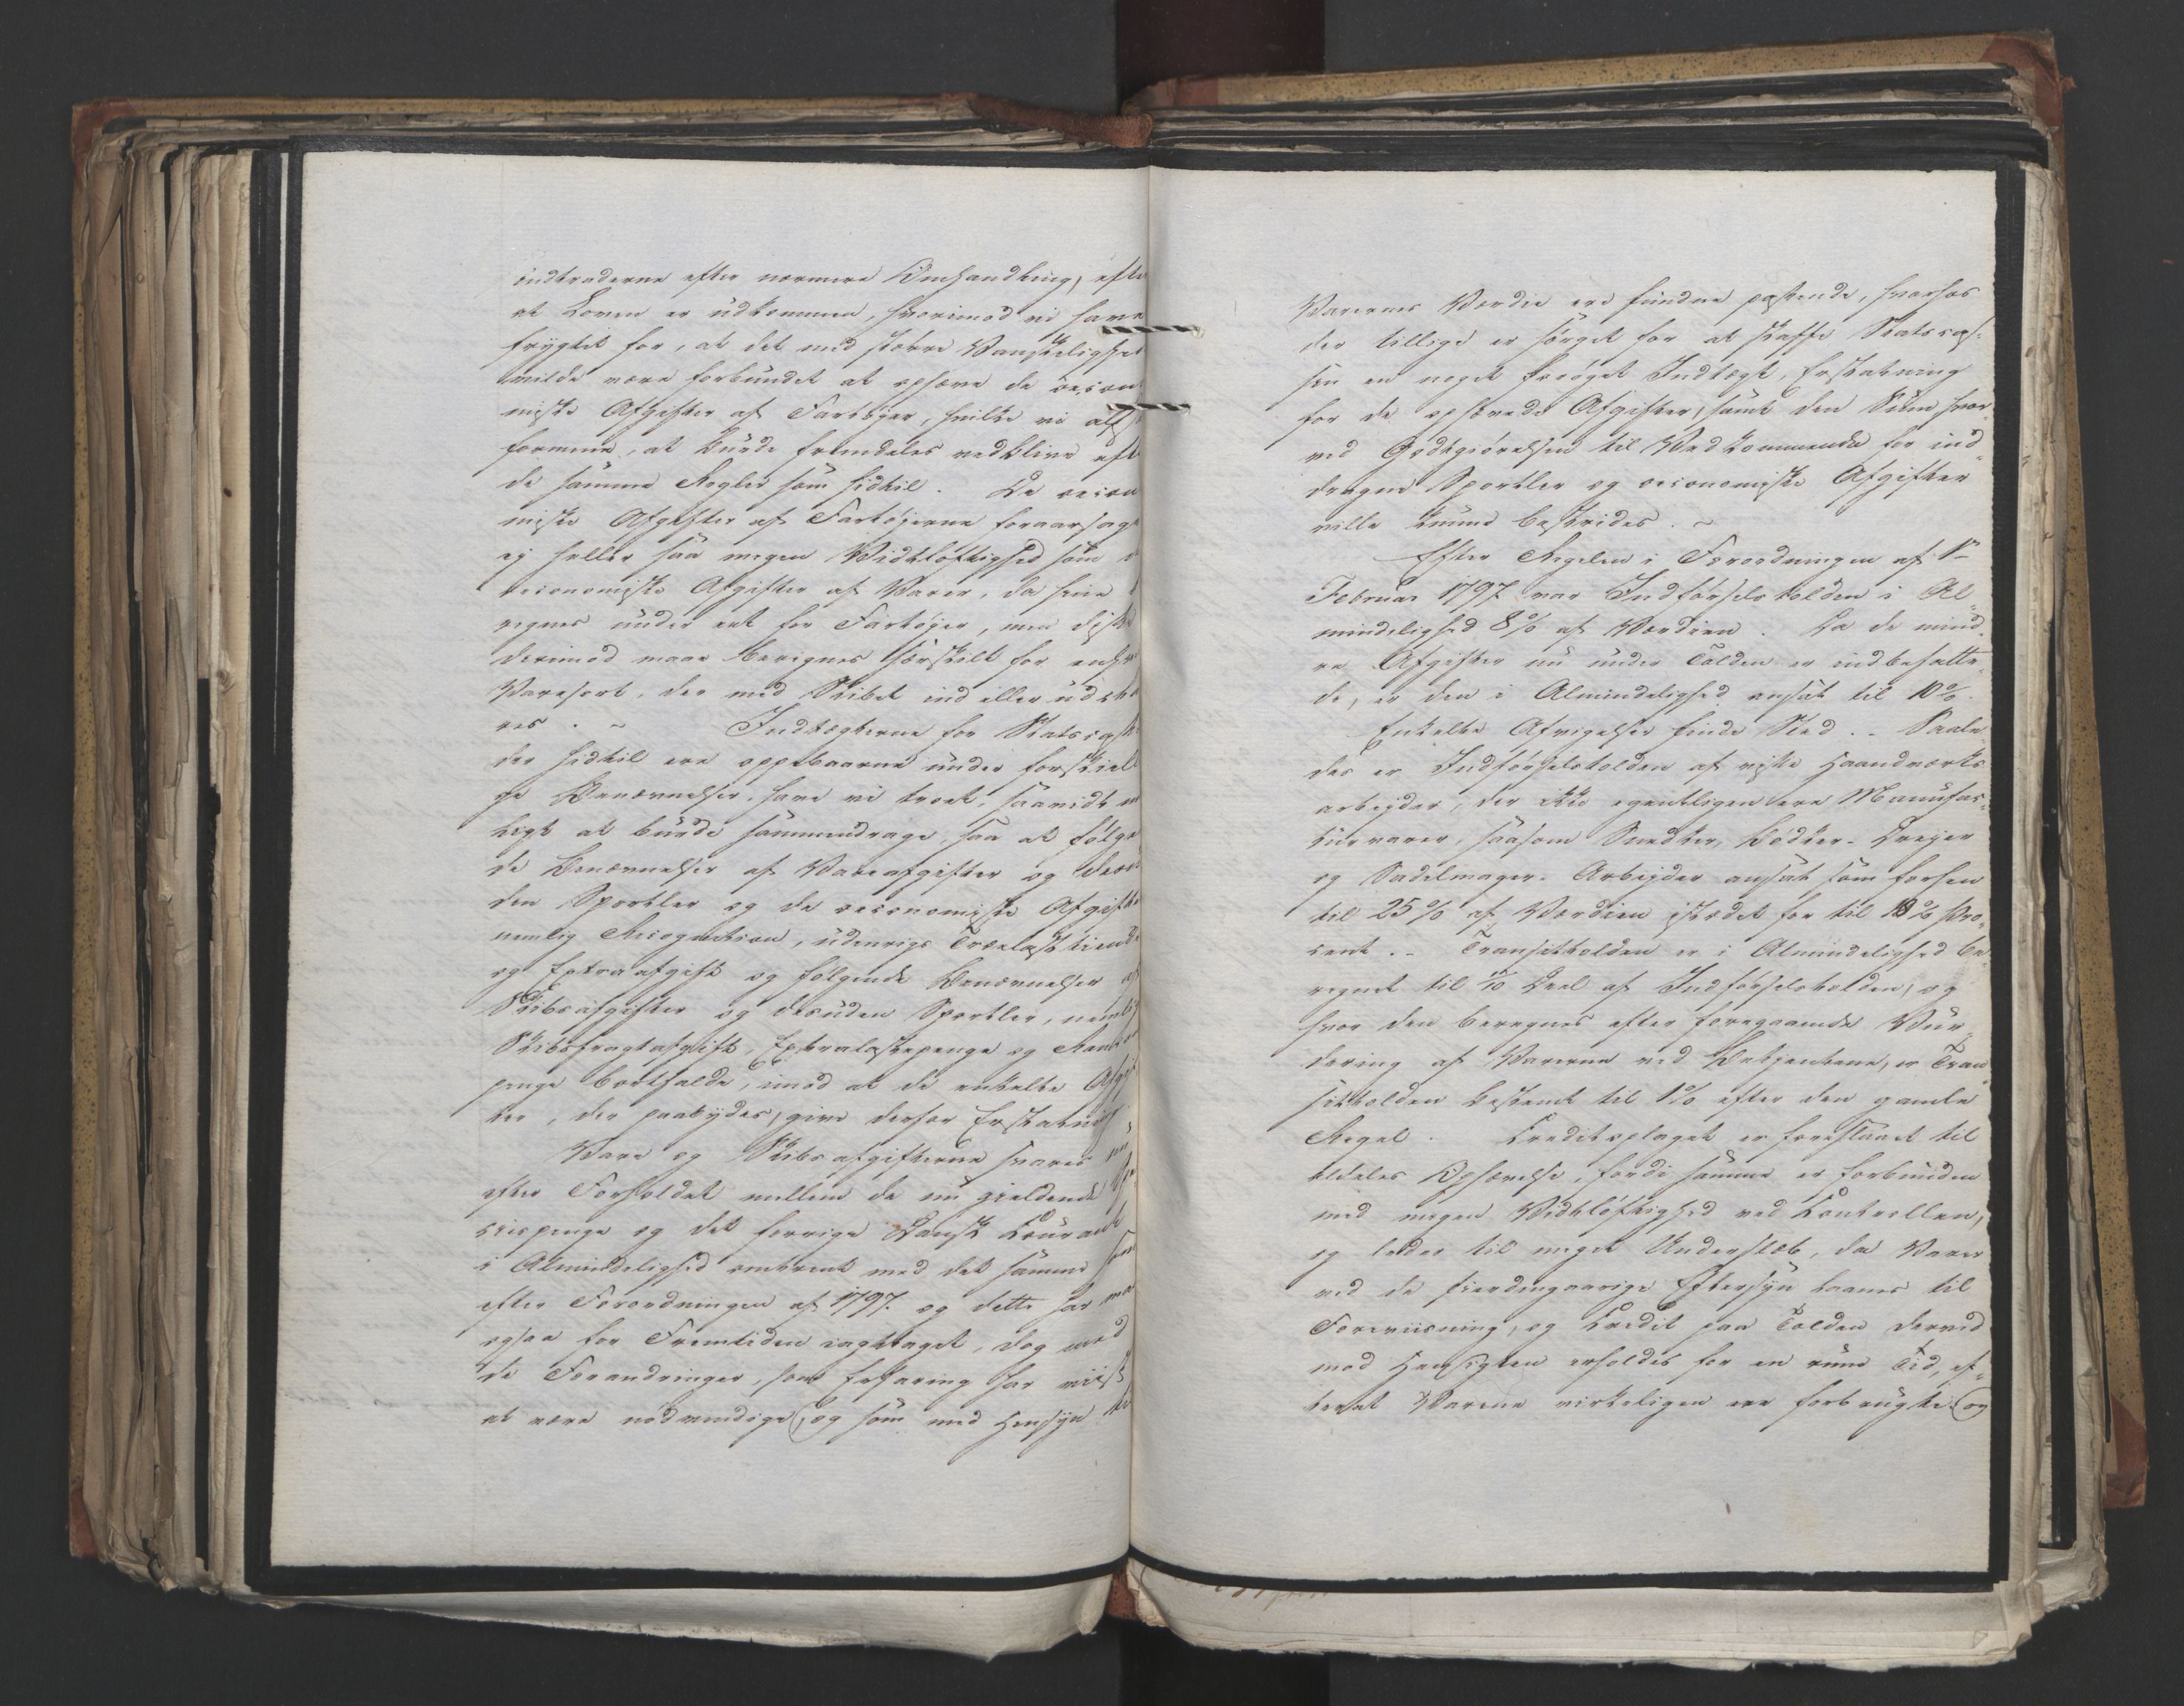 indtræderne efter nærmere Omhandling, efte
at Loven er udkommen, hvorimod vi have
frygtet for, at det med større Vanskelighed
vilde være forbundet at ophæve de oecono
miske Afgifter af Fartøjer, hvilke vi altsaa
formene, at burde fremdeles vedblive efter
de samme Regler som hidtil. De oecono
miske Afgifter af Fartøjerne foraarsage
ej heller saa megen Vidtløftighed som de
oeconomiske Afgifter af Varer, da hine be
regnes under eet for Fartøjer, men disse
derimod maae beregnes særskilt for enhver
Varesort, der med Skibet ind eller udfø
res. ~ Indtægterne for Statscassen
der hidtil ere oppebaarne under forskiell
ge Benævnelser, have vi troet, saavidt mu
ligt at burde sammendrage, saa at følgen
de Benævnelser af Vareafgifter og desu
den Sportler og de oeconomiske Afgifter
nemlig Recognition, udenrigs Trælasttiende
og Extraafgift og følgende Benævnelser af
Skibsafgifter og desuden Sportler, nemlig
Skibsfragtafgift, Extralastepenge og
penge bortfalde, imod at de enkelte Afgif
ter, der paabydes, give derfor Erstatning
Vare og Skibsafgifterne svares
efter Forholdet mellem de nu gieldende Spe
ciespenge og det forrige Dansk Courant
i Almindelighed omtrent med det samme som
efter Forordningen af 1797. og dette har man
ogsaa for Fremtiden iagttaget, dog med
de Forandringer, som Erfaring har viist
at være nødvendige, og som med Hensyn til
Varernes Værdie ere fundne passende, hvorhos
der tillige er sørget for at skaffe Statscas-
sen en noget forøget Indtægt, Erstatning
for de ophævede Afgifter, samt den Sum hvor-
ved Godtgiørelsen til Vedkommende for ind-
dragne Sportler og oeconomiske Afgifter
ville kunne bestrides. ~
Efter Regelen i Forordningen af 1ste
Februar 1797 var Indførselstolden i Al-
mindelighed 8% af Værdien. Da de mind-
re Afgifter nu under Tolden er indbefatte-
de, er den i Almindelighed ansat til 10%.
Enkelte Afvigelser finde Sted. - Saale
des er Indførselstolden af visse Haandværks
arbejder, der ikke egentligen ere Manufac-
turvarer, saasom Snedker, Bødker- Drejer
og Sadelmager- Arbejder ansat som forhen
til 25% af Værdien istedet for til 10% Pro-
cent. - Transittolden er i Almindelighed be-
regnet til 1/10 Deel af Indførselstolden, og
hvor den beregnes efter foregaaende Vur-
dering af Varerne ved Betjentene, er Tran
sittolden bestemt til 1% efter den gamle
Regel. Creditoplaget er foreslaaet til
aldeles Ophævelse, fordi samme er forbunden
med megen Vidtløftighed ved Controllen,
og leder til meget Underslæb, da Varer
ved de fierdingaarige Eftersyn laanes til
Foreviisning, og Credit paa Tolden derved
mod Hensigten erholdes for en rum Tid, ef-
terat Varene virkeligen ere forbrugte. og